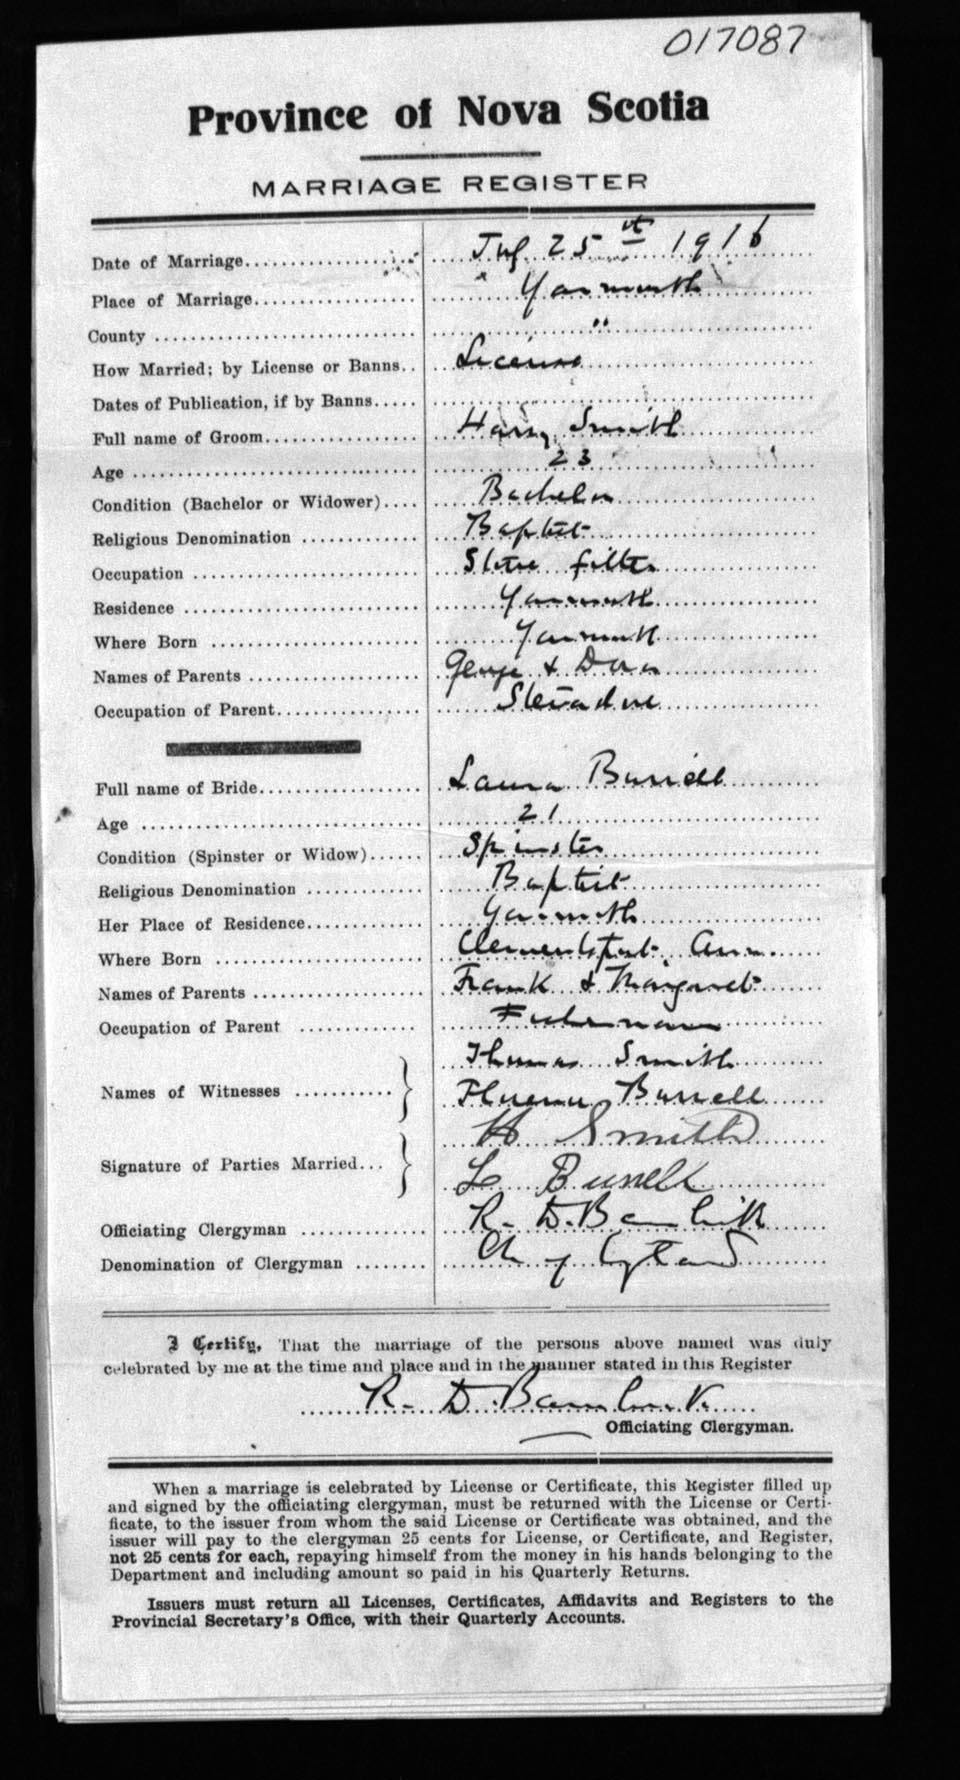 017087
Province of Nova Scotia
MARRIAGE REGISTER
Date of Marriage 25th 1916
Place of Marriage Yarmouth
County "
How Married; by License or Banns License
Dates of Publication, if by Banns
Full name of Groom Harry Smith
Age 23
Condition (Bachelor or Widower) Bachelor
Religious Denomination Baptist
Occupation Stove fitter
Residence Yarmouth
Where Born Yarmouth
Names of Parents George & Dora
Occupation of Parent Stevadore
Full name of Bride Laura Burrell
Age 21
Condition (Spinster or Widow) Spinster
Religious Denomination Baptist
Her Place of Residence Yarmouth
Where Born Clementsport, Ann.
Names of Parents Frank & Margaret
Occupation of Parent Fisherman
Thomas Smith
Names of Witnesses
Florence Burrell
H Smith
Signature of Parties Married...
L Burrell
Officiating Clergyman R. D. Bambrick
Denomination of Clergyman Ch of England
I Certify, That the marriage of the persons above named was duly
celebrated by me at the time and place and in the manner stated in this Register
R. D. Bambrick
Officiating Clergyman.
When a marriage is celebrated by License or Certificate, this Register filled up
and signed by the officiating clergyman, must be returned with the License or Certi-
ficate, to the issuer from whom the said License or Certificate was obtained, and the
issuer will pay to the clergyman 25 cents for License, or Certificate, and Register,
not 25 cents for each, repaying himself from the money in his hands belonging to the
Department and including amount so paid in his Quarterly Returns.
Issuers must return all Licenses, Certificates, Affidavits and Registers to the
Provincial Secretary's Office, with their Quarterly Accounts.